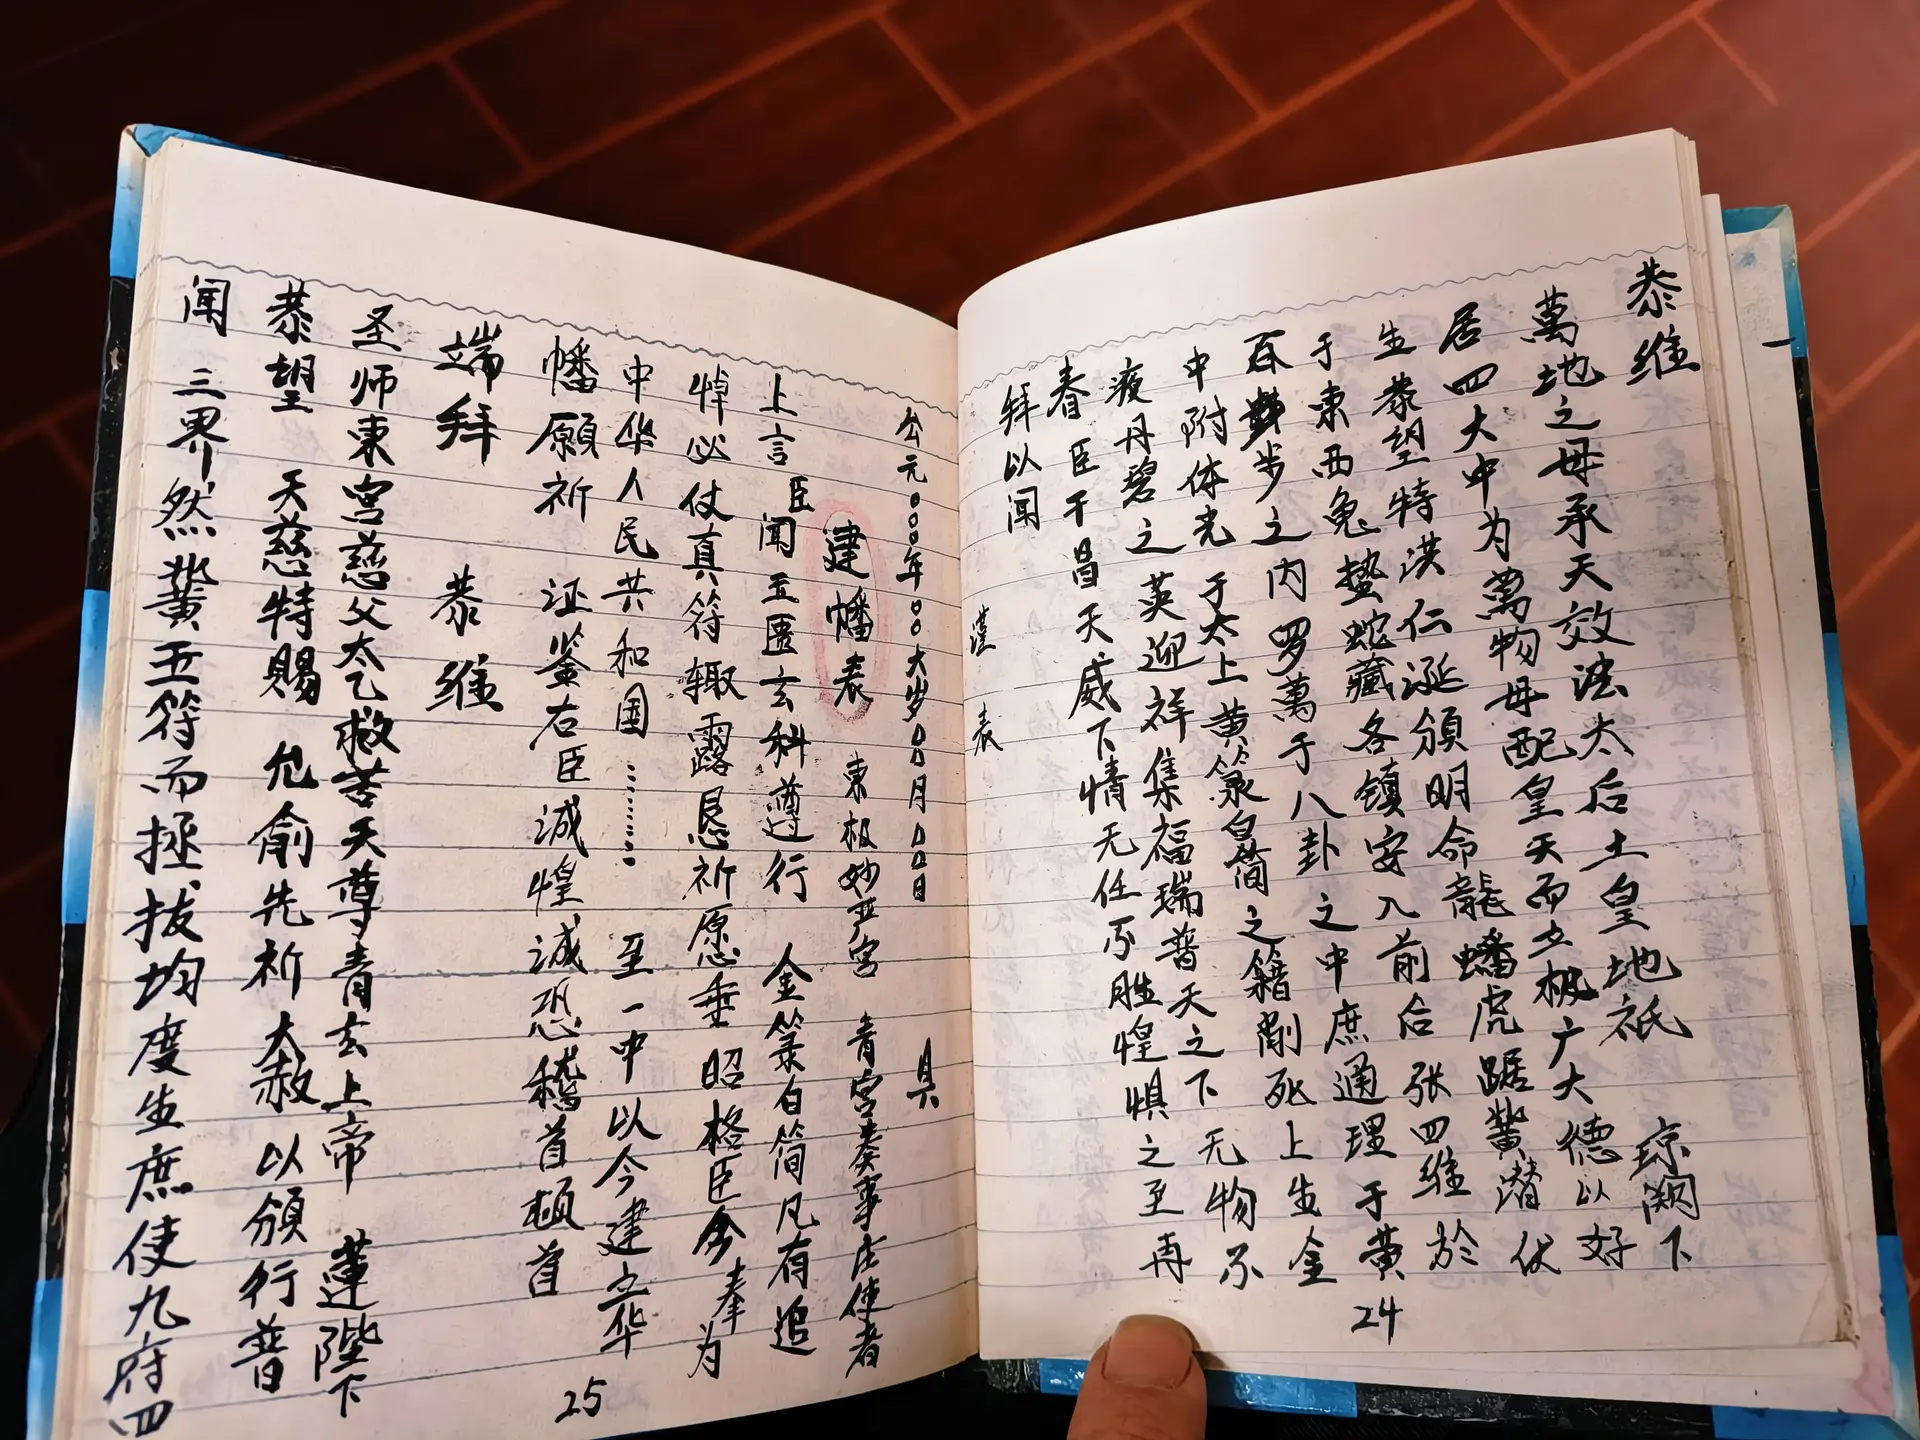 恭维
萬地之母承天效法太后土皇地祇 琼阙下
居四大中为萬物母配皇天而立极广大德以好
生恭望特洪仁涎頒明命龍蟠虎踞黄潜伏
于東西兔蛰蛇藏各镇安入前后张四维於
百步之内罗萬于八卦之中庶通理于黄
中附体光于太上黄箓白简之籍削死上生金
液丹碧之英迎祥集福瑞普天之下无物不
春臣干冒天威下情无任不胜惶惧之至再
拜以闻
謹表
24
公元〇〇〇年〇〇大岁凸凸月凸凸日 具
建幡表 東极妙严宫 青宫奏事庄使者
上言臣闻玉匮玄科遵行 金箓白简凡有追
悼必仗真符辄露恳祈愿垂 昭格臣今奉为
中华人民共和国………… 至一中以今建立华
幡願祈 证鉴右臣诚惶诚恐稽首頓首
端拜 恭维
圣师東宫慈父太乙救苦天尊青玄上帝 蓮陛下
恭望 天慈特赐 允俞先祈 大赦以頒行普
闻 三界然黄玉符而拯拔均度生庶使九府四
25